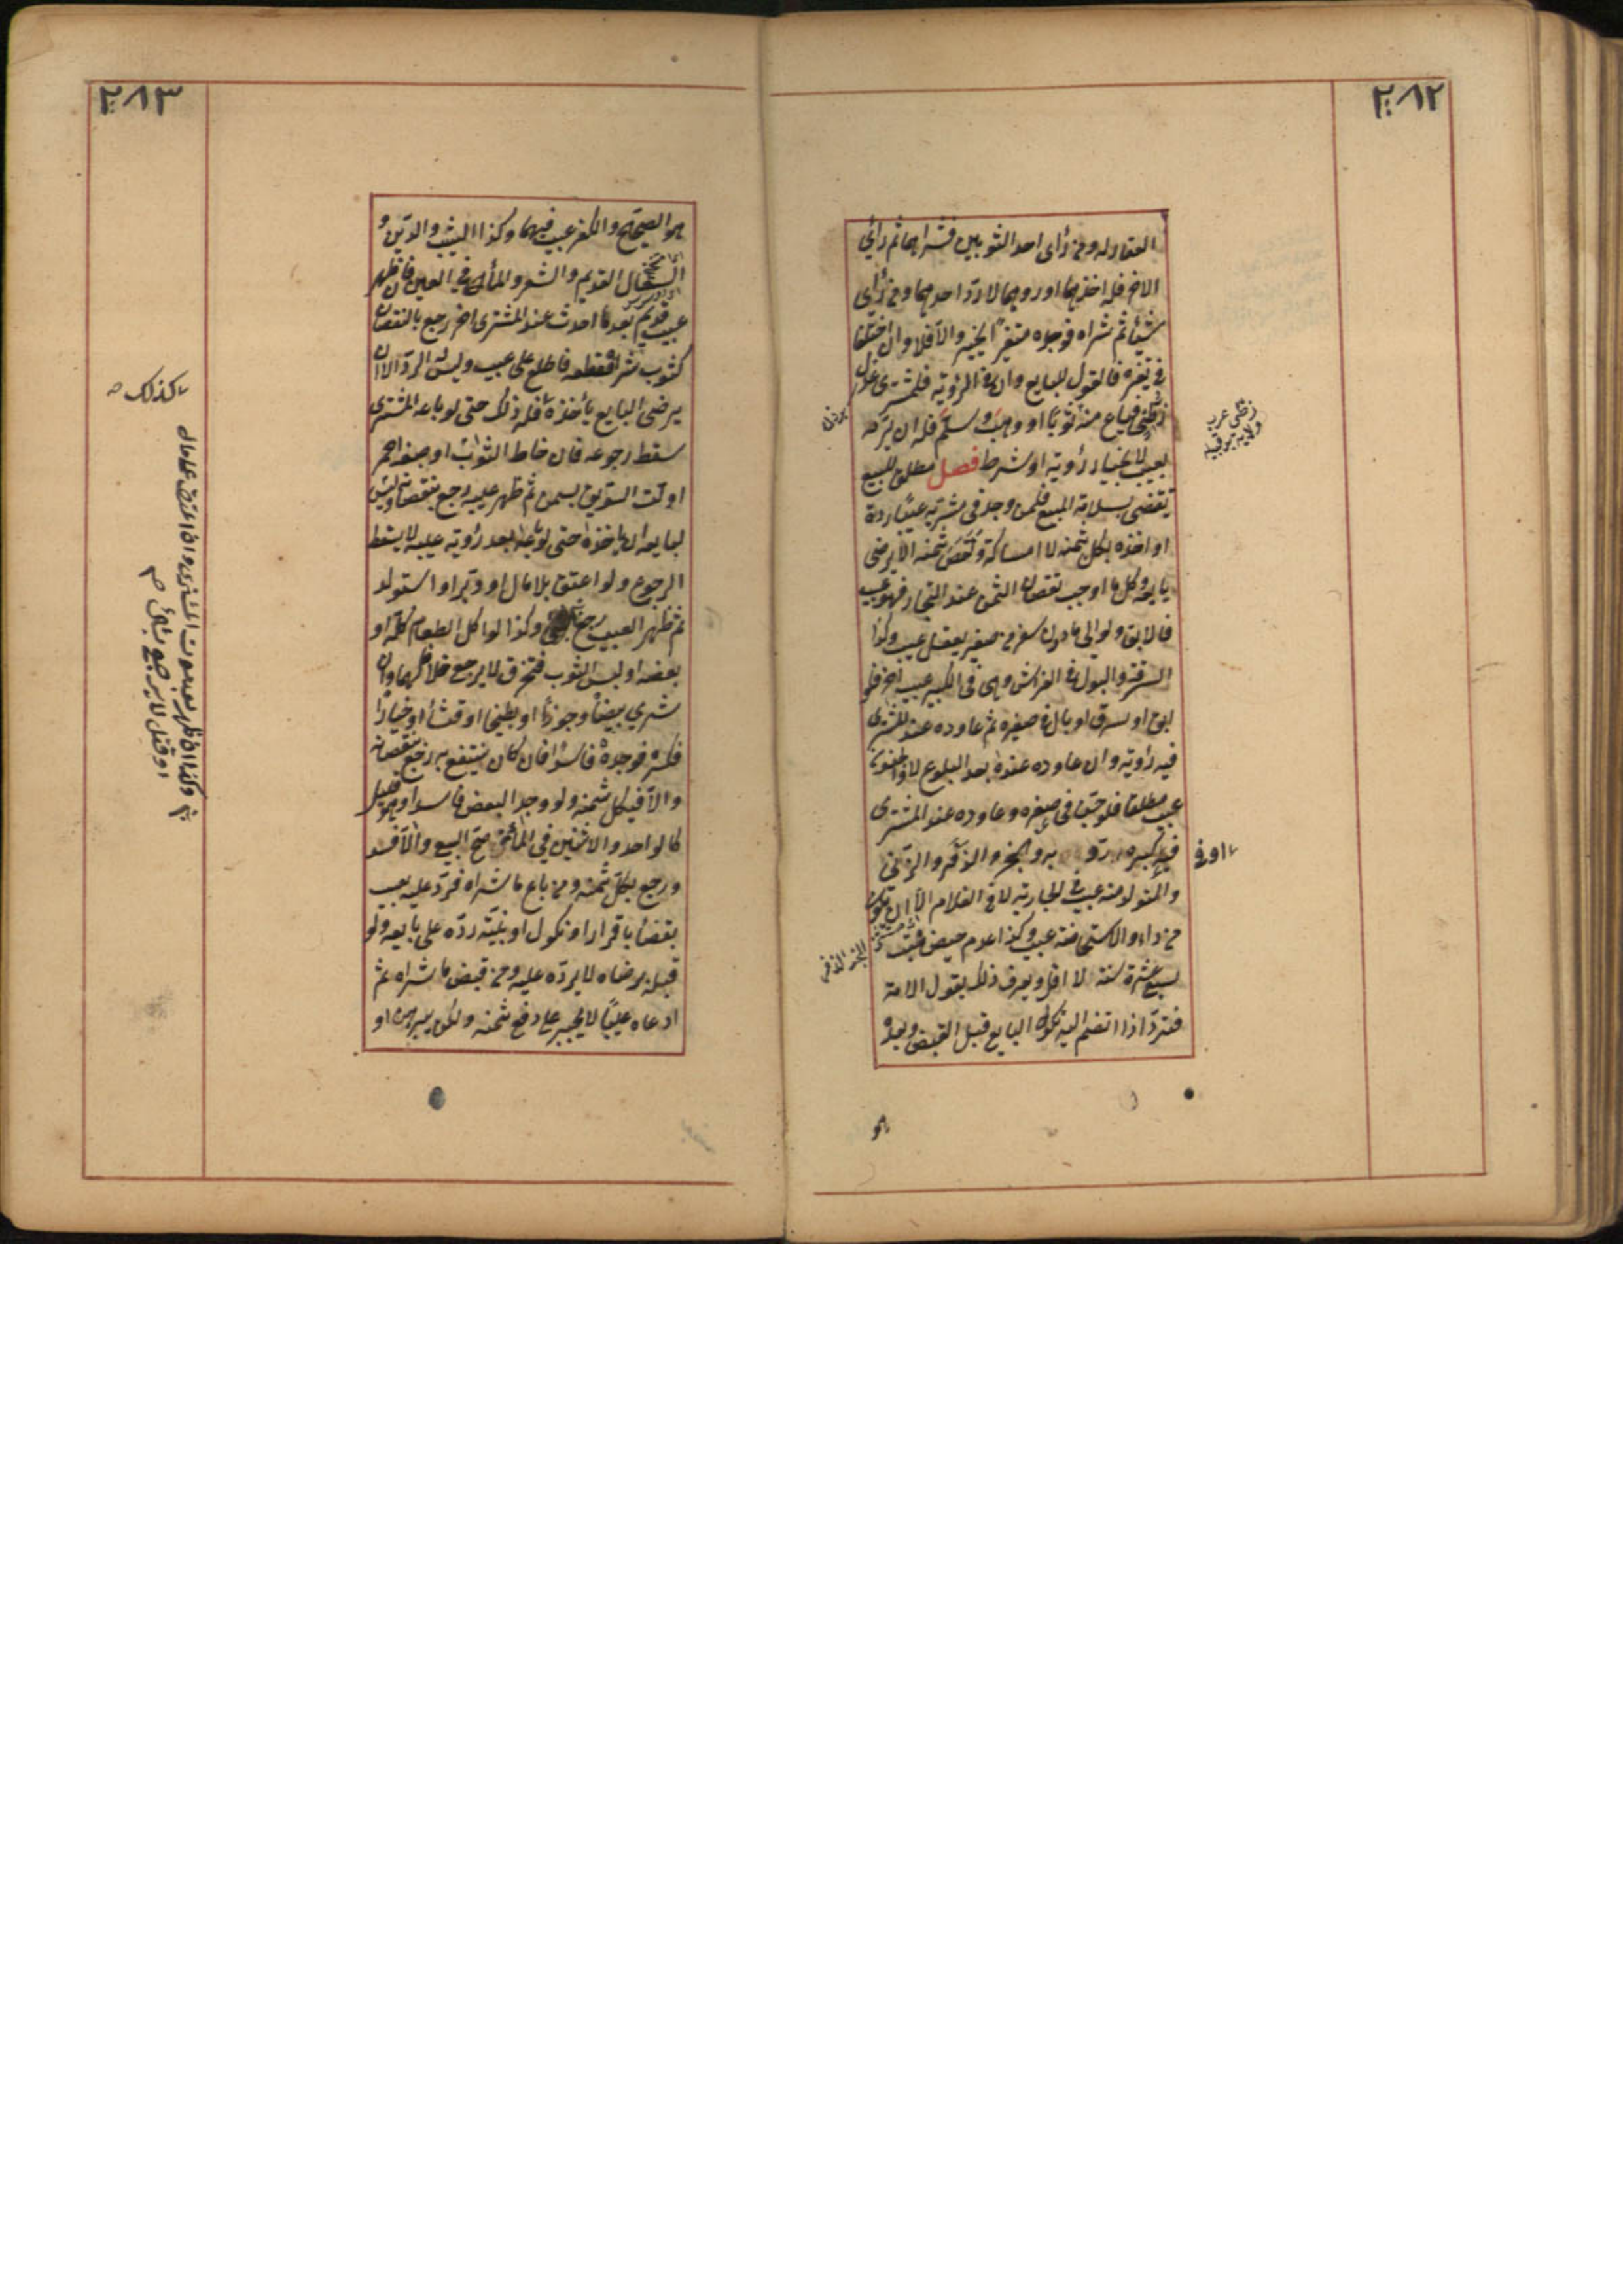 ٢٨٢
العقار له ومن رأى احد الثوبين فشراهما ثم رأى
الاخر فله اخذهما او ردهما لا ردّ احدهما ومن رأى
شيئا ثم شراه فوجده متغيراً يخير والآ فلا وان اختلفا
في تغيره فالقول للبايع وان في الرؤية فللمشتري عدل
زطّيّ فباع منه ثوبًا او وهب وسلّم فله ان يردّه
بعيب لا بخيار رؤية او شرط فصل مطلق البيع
يقتضي سلامة المبيع فلمن وجد في مشريه عيبًا ردّه
او اخذه بكل ثمنه لا امساكه ونقص ثمنه الا برضى
بايعه وكل ما اوجب نقصان الثمن عند التجار فهو عيب
فالاباق ولو الى ما دون سفر من صغير يعقل عيب وكذا
السرقة والبول في الفراش وهي في الكبير عيب اخر فلو
ابق او سرق او بال في صغيره ثم عاوده عند المشتري
فيه رؤيته وان عاوده عنده بعد البلوغ لا والجنون
عيب مطلقا فلو جنّ في صغره وعاوده عند المشتري
فيه كبيره ردّ به والبخر والذّفر والزّنى
والتولد منه عيب في الجارية لا في الغلام الاّ ان يكون
من داء والاستحاضة عيب وكذا عدم حيض بنت
سبع عشرة سنة لا اقل ويعرف ذلك بقول الامة
فتردّ اذا انضم اليه نكول البايع قبل القبض وبعده
زطّي عرب
او في
هو
٢٨٣
هو الصحيح والكفر عيب فيهما وكذا الشيب والدّين و
السّعال القديم والشعر والماء في العين فان ظهر
عيب قديم بعد ما احدث عند المشتري اخر رجع بالنقصان
كثوب شراه فقطعه فاطلع على عيب وليس له الردّ الاان
يرضى البايع باخذه فله ذلك حتى لو باعه المشتري
سقط رجوعه فان خاط الثوب او صبغه احمر
او لتّ السّويق بسمن ثم ظهر عيبه رجع بنقصانه وليس
لبايعه ان ياخذه حتى لو باعه بعد رؤية عيبه لا يسقط
الرجوع ولو اعتق بلا مال او دبّر او استولد
ثم ظهر العيب رجع وكذا لو اكل الطعام كلّه او
بعضه او لبس الثوب فتخرق لا يرجع خلافا لهما وان
شرى بيضًا وجوزًا او بطيخا او قثاً او خيارًا
فكسره فوجده فاسدًا فان كان ينتفع به رجع بنقصانه
والآ فبكل ثمنه ولو وجد البعض فاسدا وهو قليل
كالواحد والاثنين في المائة صحّ البيع والآ فسد
ورجع بكلّ ثمنه ومن باع ما شراه فردّ عليه بعيب
بقضاء باقرار او نكول او بيّنة ردّه على بايعه ولو
قبله برضاه لا يردّه عليه ومن قبض ما شراه ثم
ادعاه عيبًا لا يجبر على دفع ثمنه ولكن يبرهن او
كذلك
وكذا ان ظهر بعد موت المشترى وان اعتق على مال
او قتل لا يرجع بشئ